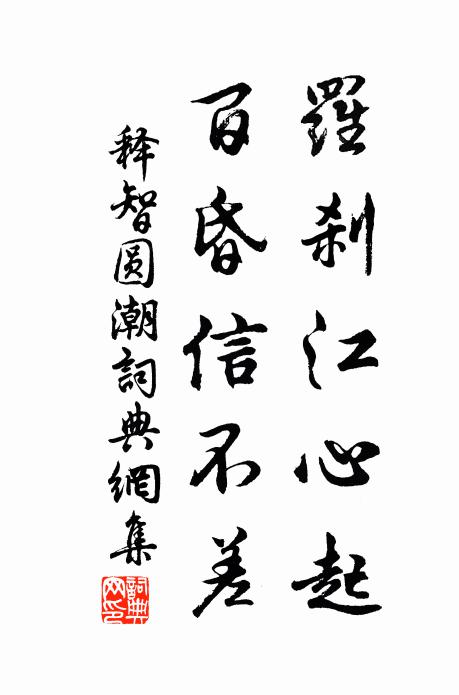 羅刹江心起
百昏信不差
释智圆潮詞典網集
詞典網印